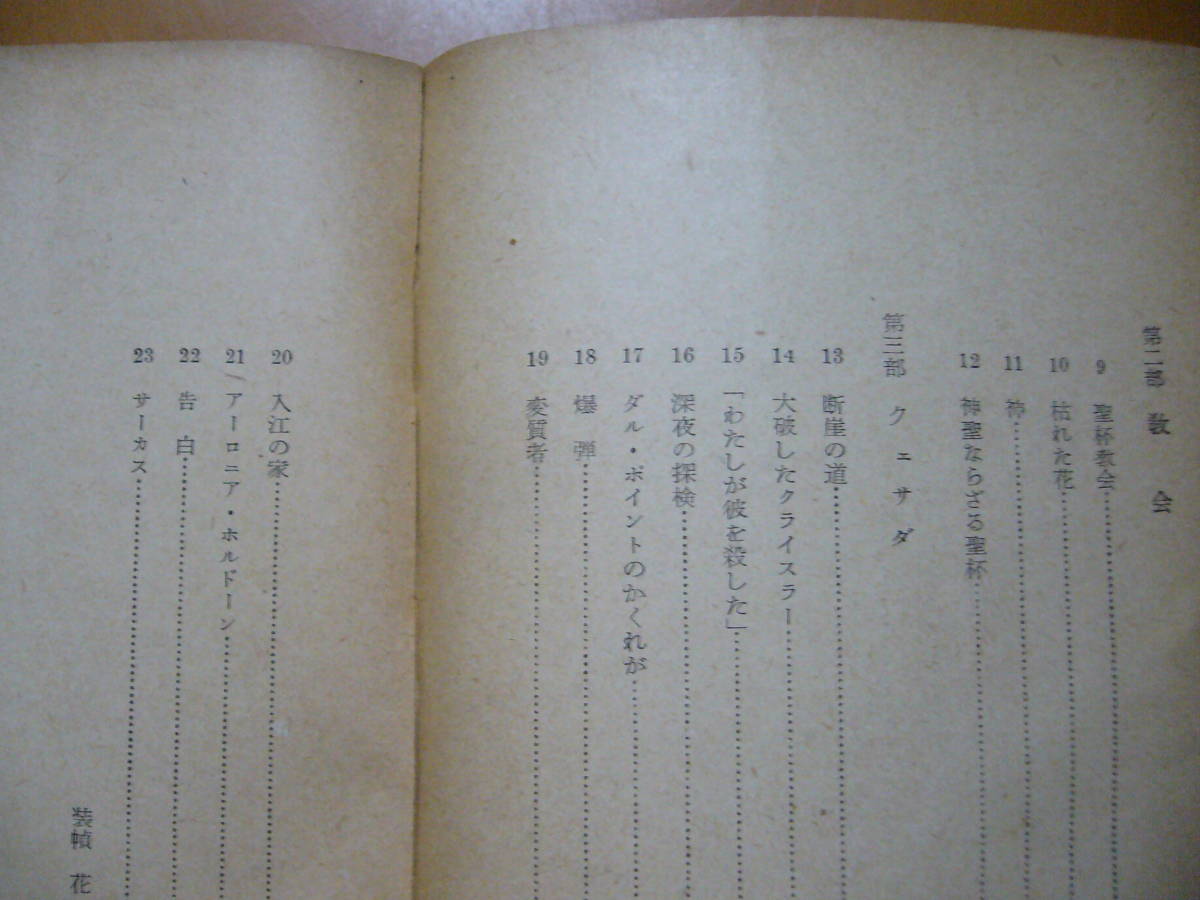 第二部 教会
9 聖杯教会
10 枯れた花
11 神
12 神聖ならざる聖杯
第三部 クェサダ
13 断崖の道
14 大破したクライスラー
15 「わたしが彼を殺した」
16 深夜の探検
17 ダル・ポイントのかくれが
18 爆弾
19 変質者
20 入江の家
21 アーロニア・ホルドーン
22 告白
23 サーカス
装幀 花